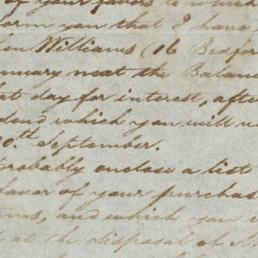 of your favors to which
form you that I have
Williams (16 Bedfor
nuary next the Balan
at day for interest, afte
dend which you will
0th September.
probably enclose a list
favor of your purchas
ms, and which you
at the disposal of